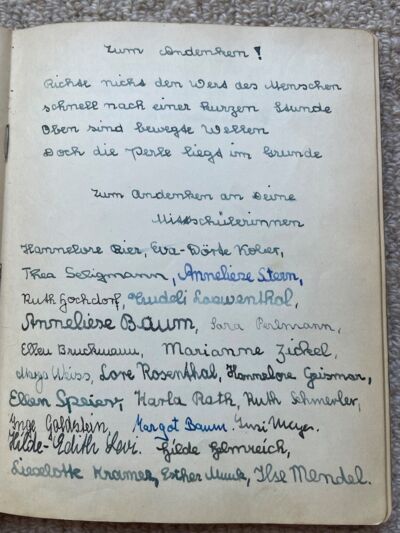 Zum Andenken!
Richte nicht den Wert des Menschen
schnell nach einer kurzen Stunde
Oben sind bewegte Wellen
Doch die Perle liegt im Grunde
Zum Andenken an Deine
Mitschülerinnen
Hannelore Bier, Eva-Dörte Kober,
Thea Seligmann, Anneliese Stern,
Ruth Hochdorf, Trudeli Loewenthal,
Anneliese Baum, Sara Perlmann,
Ellen Bruckmann, Marianne Zickel,
Weiss, Lore Rosenthal, Hannelore Geismar,
Ellen Speier, Karla Rath, Ruth Schmerler,
Inge Goldstein, Margot Baum. Susi Mayer.
Hilde-Edith Levi. Hilde Helmreich,
Lieselotte Kramer, Esther Munk, Ilse Mendel.